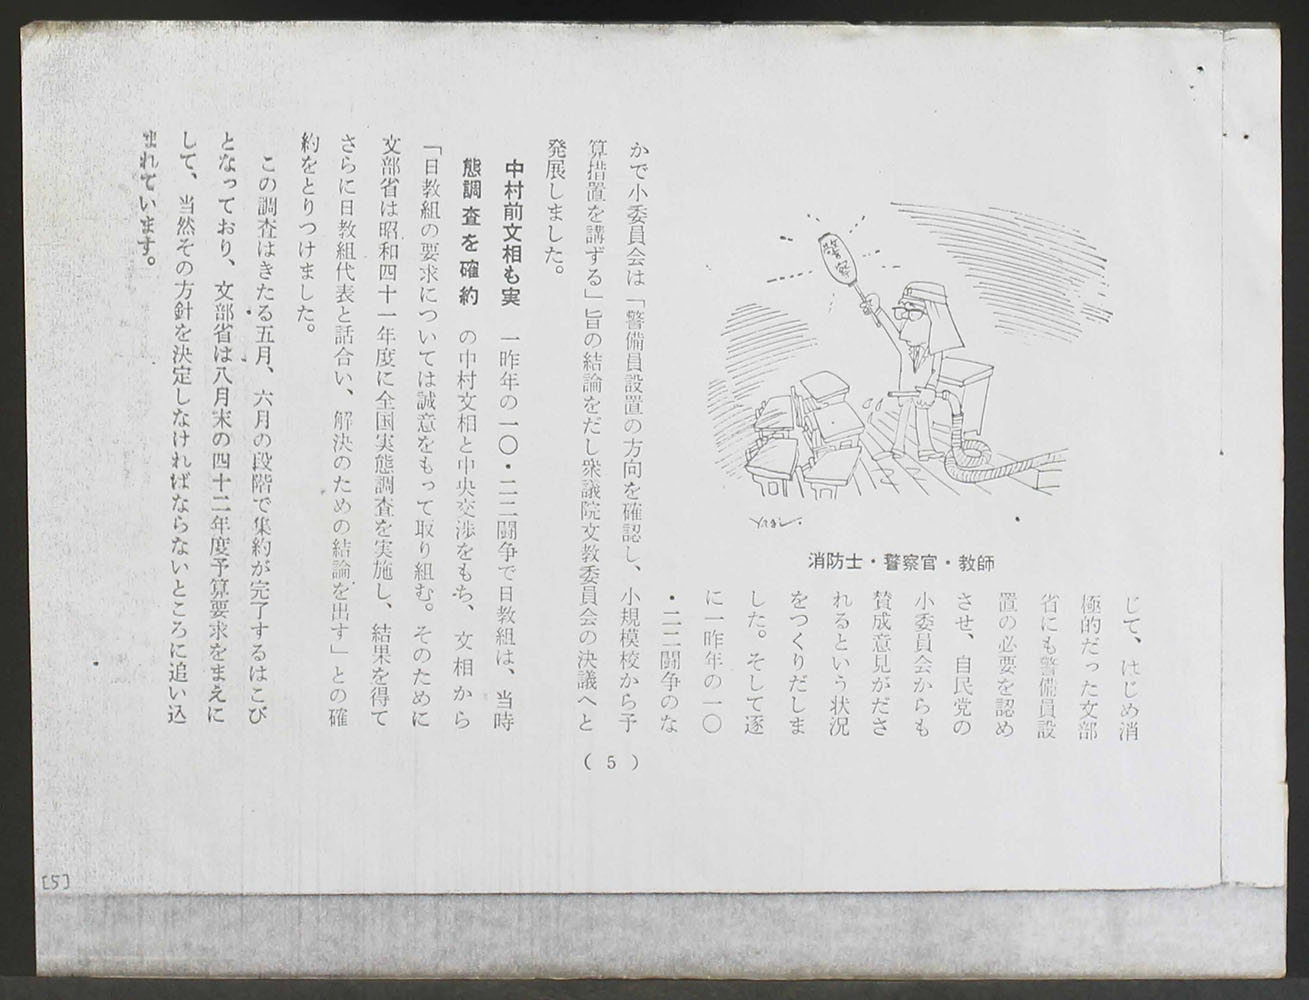 警察
消防士・警察官・教師
じて、はじめ消
極的だった文部
省にも警備員設
置の必要を認め
させ、自民党の
小委員会からも
賛成意見がださ
れるという状況
をつくりだしま
した。そして逐
に一昨年の一〇
・二二闘争のな
かで小委員会は「警備員設置の方向を確認し、小規模校から予
算措置を講ずる」旨の結論をだし衆議院文教委員会の決議へと
発展しました。
中村前文相も実
態調査を確約
一昨年の一〇・二二闘争で日教組は、当時
の中村文相と中央交渉をもち、文相から
「日教組の要求については誠意をもって取り組む。そのために
文部省は昭和四十一年度に全国実態調査を実施し、結果を得て
さらに日教組代表と話合い、解決のための結論を出す」との確
約をとりつけました。
この調査はきたる五月、六月の段階で集約が完了するはこび
となっており、文部省は八月末の四十二年度予算要求をまえに
して、当然その方針を決定しなければならないところに追い込
まれています。
(5)
[5]